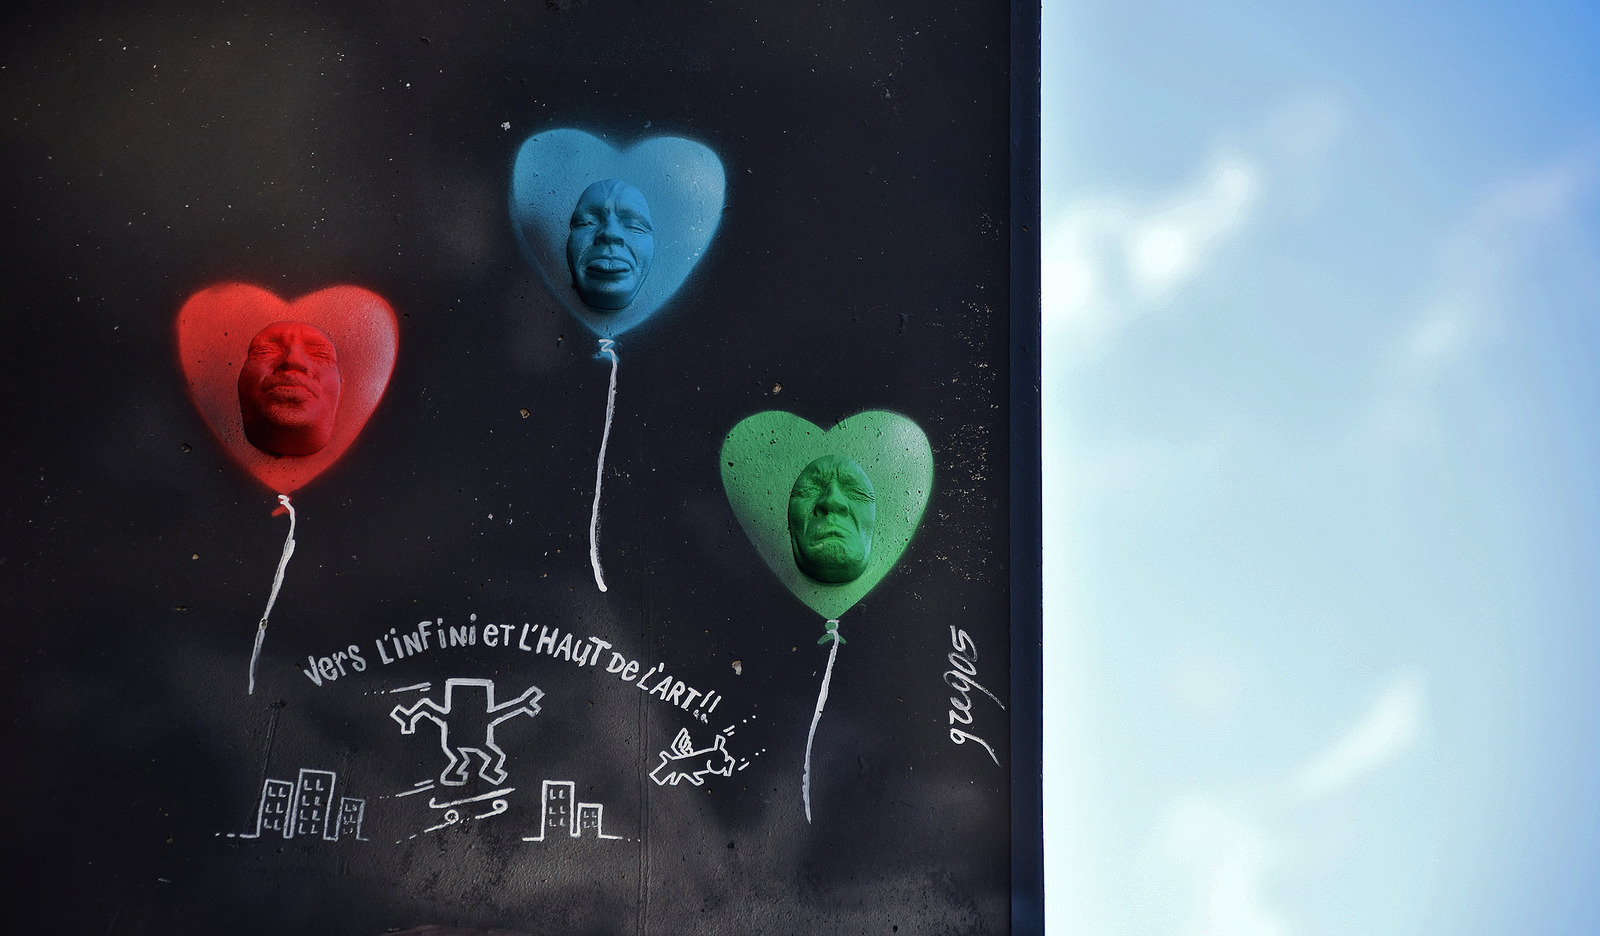 vers L'iNFiNi eT L'HAUT De L'ART!!
gregos